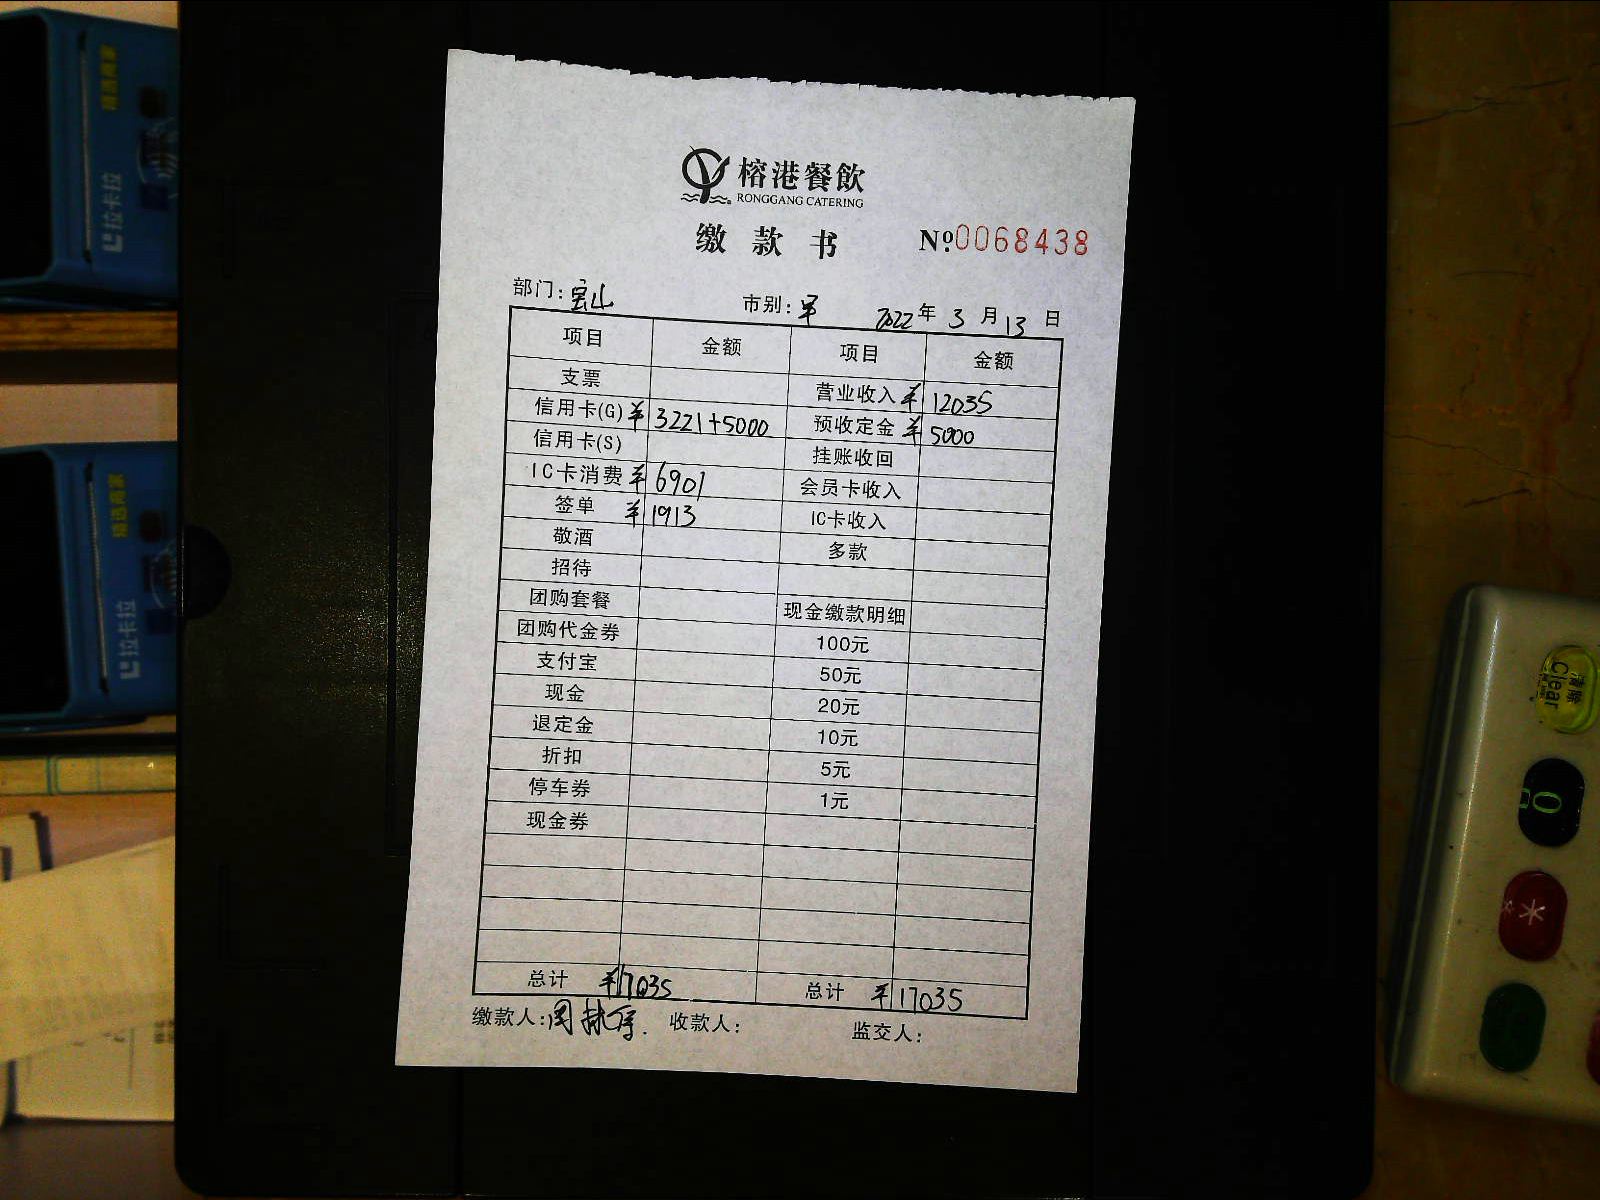 榕港餐飲
RONGGANG CATERING
缴款书 Nº0068438
部门:宝山 市别:早 2022年3月13日
项目 金额 项目 金额
支票 营业收入 ¥12035
信用卡(G) ¥3221+5000 预收定金 ¥5000
信用卡(S) 挂账收回
IC卡消费 ¥6901 会员卡收入
签单 ¥1913 IC卡收入
敬酒 多款
招待
团购套餐 现金缴款明细
团购代金券 100元
支付宝 50元
现金 20元
退定金 10元
折扣 5元
停车券 1元
现金券
总计 ¥17035 总计 ¥17035
缴款人: 收款人: 监交人:
拉卡拉
精选商家
拉卡拉
精选商家
清除
Clear
0
*